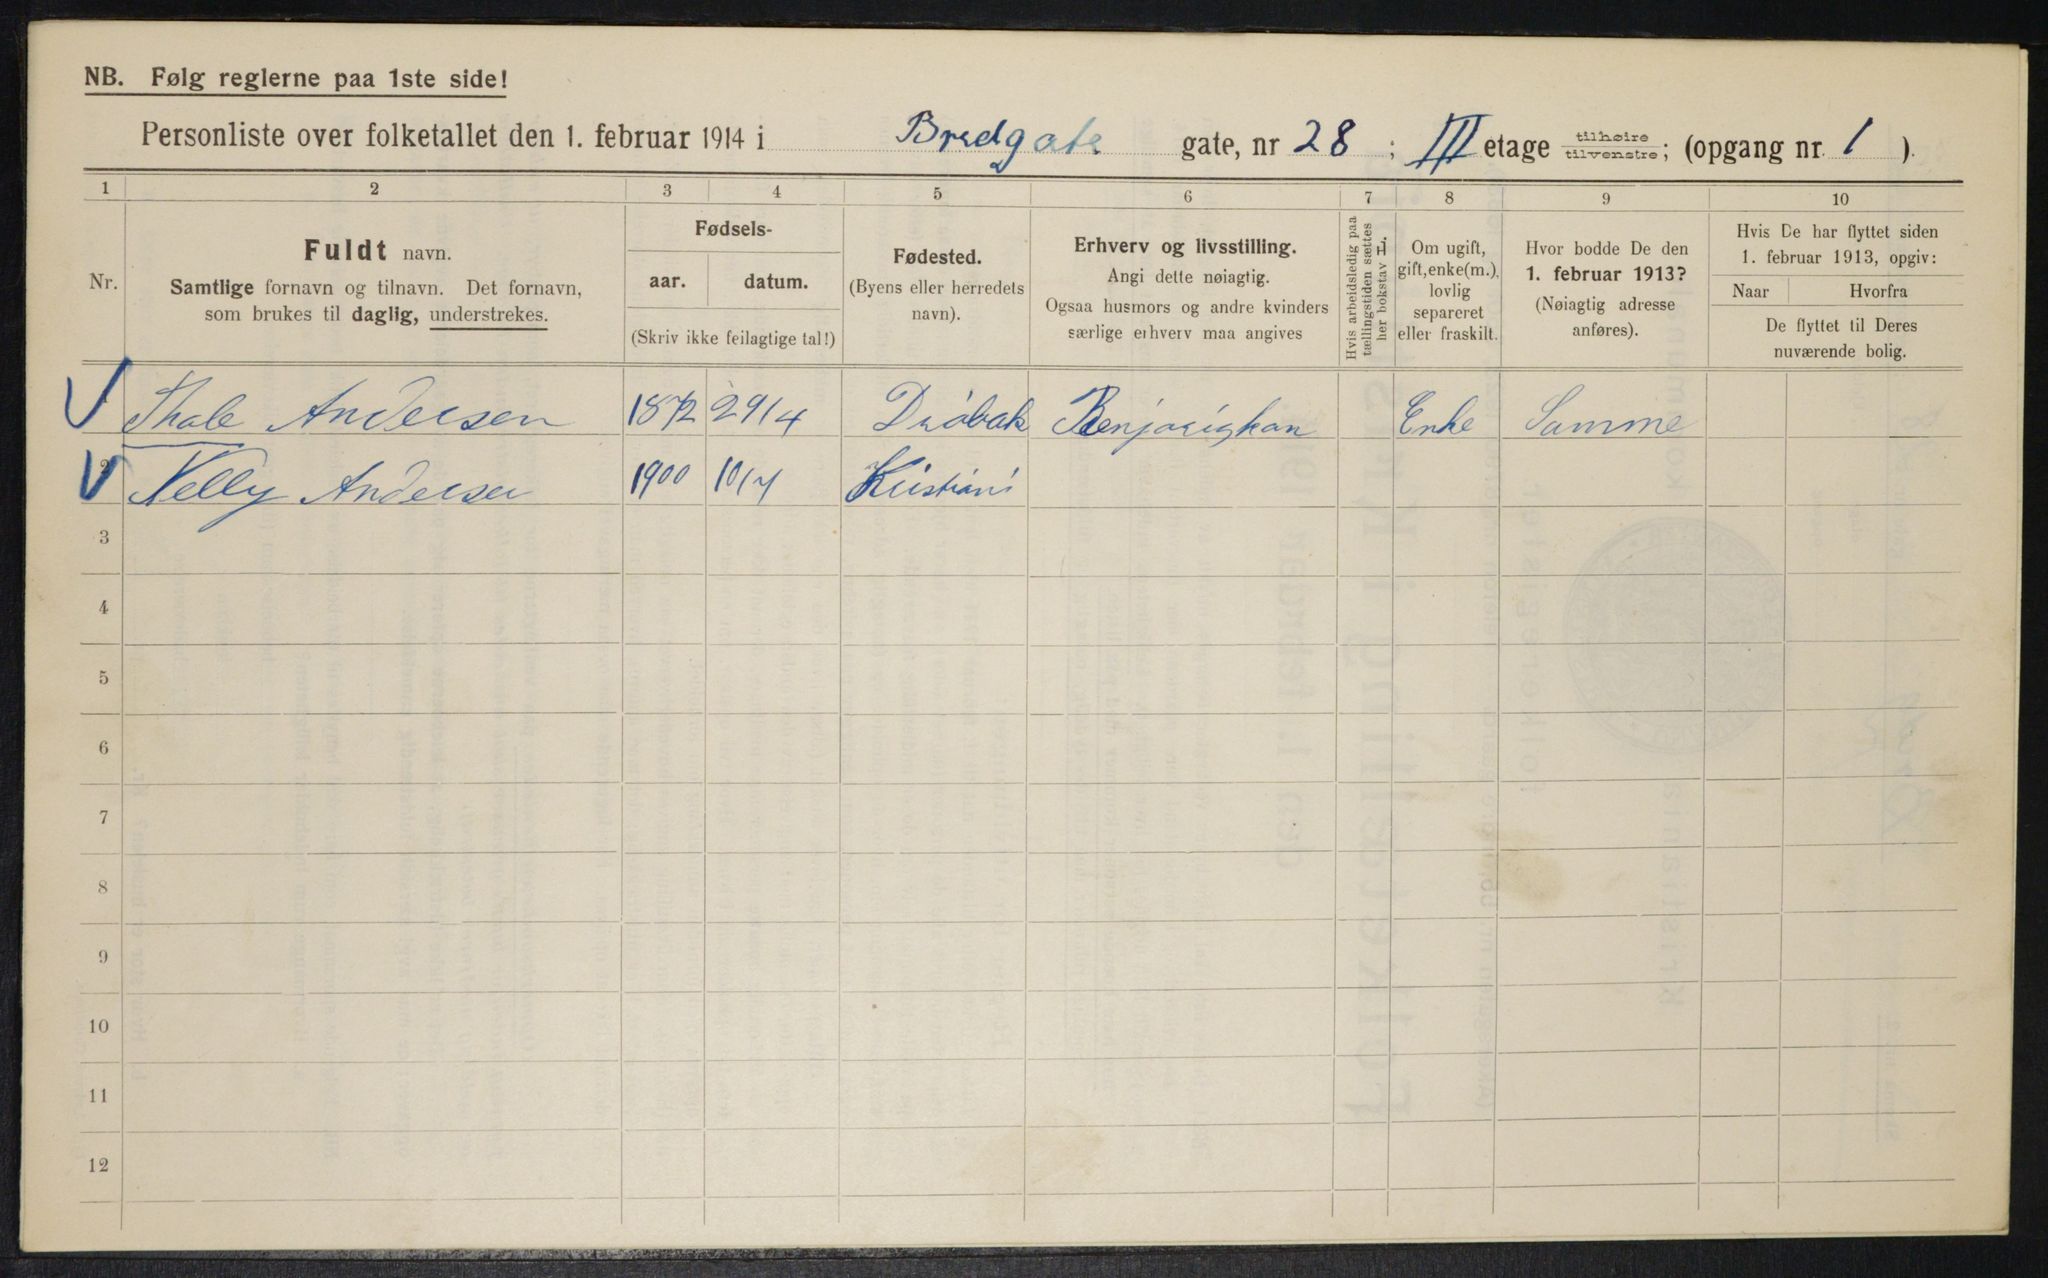 NB. Følg reglerne paa 1ste side!
Personliste over folketallet den 1. februar 1914 i Bredgate gate, nr 28; III etage tilhøire/tilvenstre; (opgang nr. 1).
1 2 3 4 5 6 7 8 9 10
Nr.
Fuldt navn.
Samtlige fornavn og tilnavn. Det fornavn,
som brukes til daglig, understrekes.
Fødsels-
aar. datum.
(Skriv ikke feilagtige tal!)
Fødested.
(Byens eller herredets
navn).
Erhverv og livsstilling.
Angi dette nøiagtig.
Ogsaa husmors og andre kvinders
særlige erhverv maa angives
Hvis arbeidsledig paa
tællingstiden sættes
her bokstav L.
Om ugift,
gift, enke(m.),
lovlig
separeret
eller fraskilt.
Hvor bodde De den
1. februar 1913?
(Nøiagtig adresse
anføres).
Hvis De har flyttet siden
1. februar 1913, opgiv:
Naar Hvorfra
De flyttet til Deres
nuværende bolig.
Thale Andersen 1872 29/4 Drøbak Enke Samme
2 Nelly Andersen 1900 10/4 Kristiani
3
4
5
6
7
8
9
10
11
12